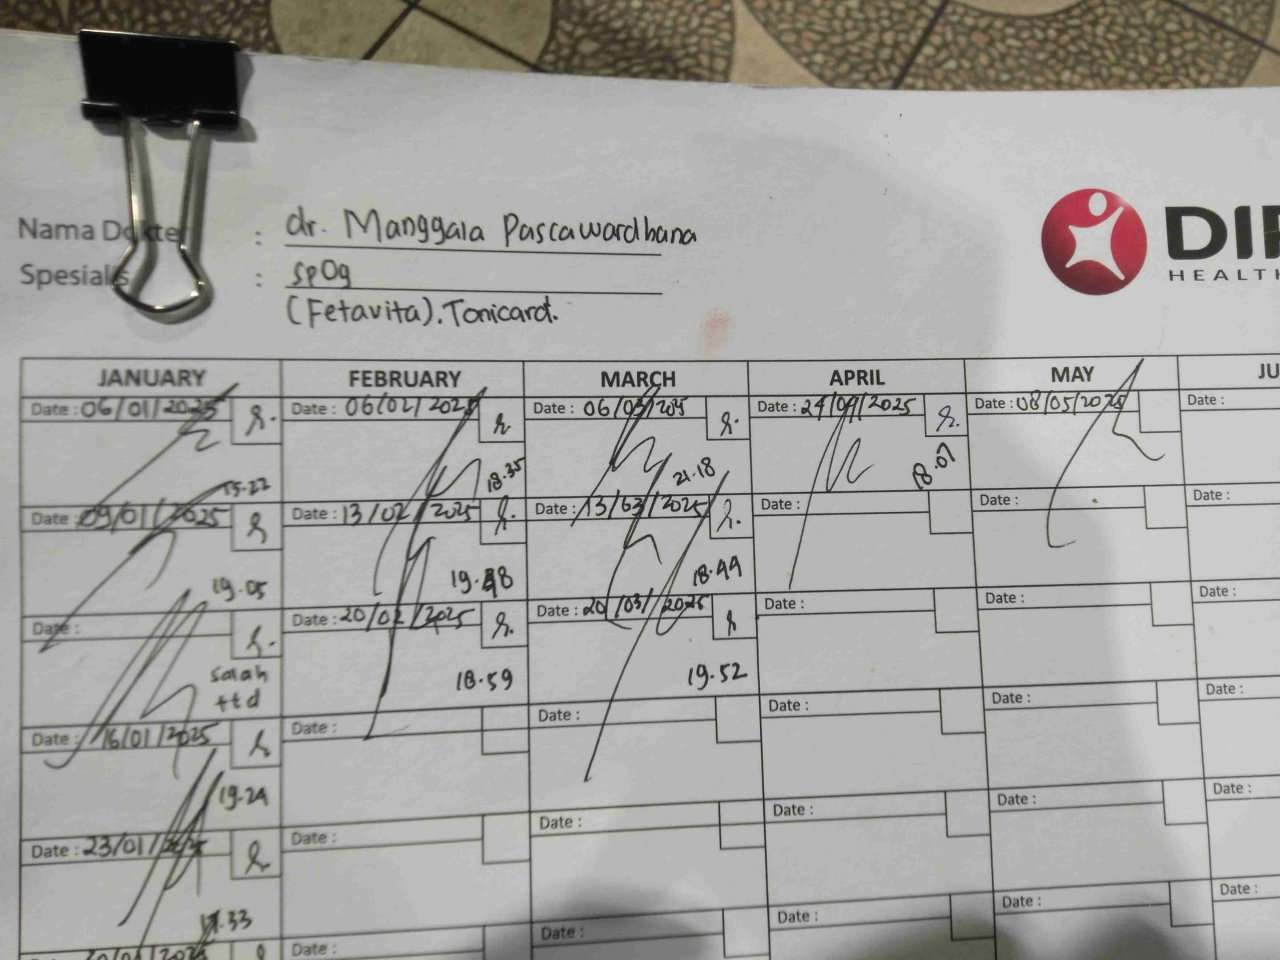 Nama Dokter : dr. Manggala Pascawardhana
Spesialis : spOg
(Fetavita). Tonicard.
DIP
HEALTH
JANUARY FEBRUARY MARCH APRIL MAY JU
Date : 06/01/2025 Date : 06/02/2025 Date : 06/03/2025 Date : 24/04/2025 Date : 08/05/2025 Date :
15.27 18.35 21.18 18.07
Date : 09/01/2025 Date : 13/02/2025 Date : 13/03/2025 Date : Date : Date :
19.05 19.48 18.49
Date : Date : 20/02/2025 Date : 20/03/2025 Date : Date : Date :
Salah
ttd 18.59 19.52
Date : 16/01/2025 Date : Date : Date : Date : Date :
19.24
Date : 23/01/2025 Date : Date : Date : Date : Date :
.33
Date : Date : Date : Date : Date :